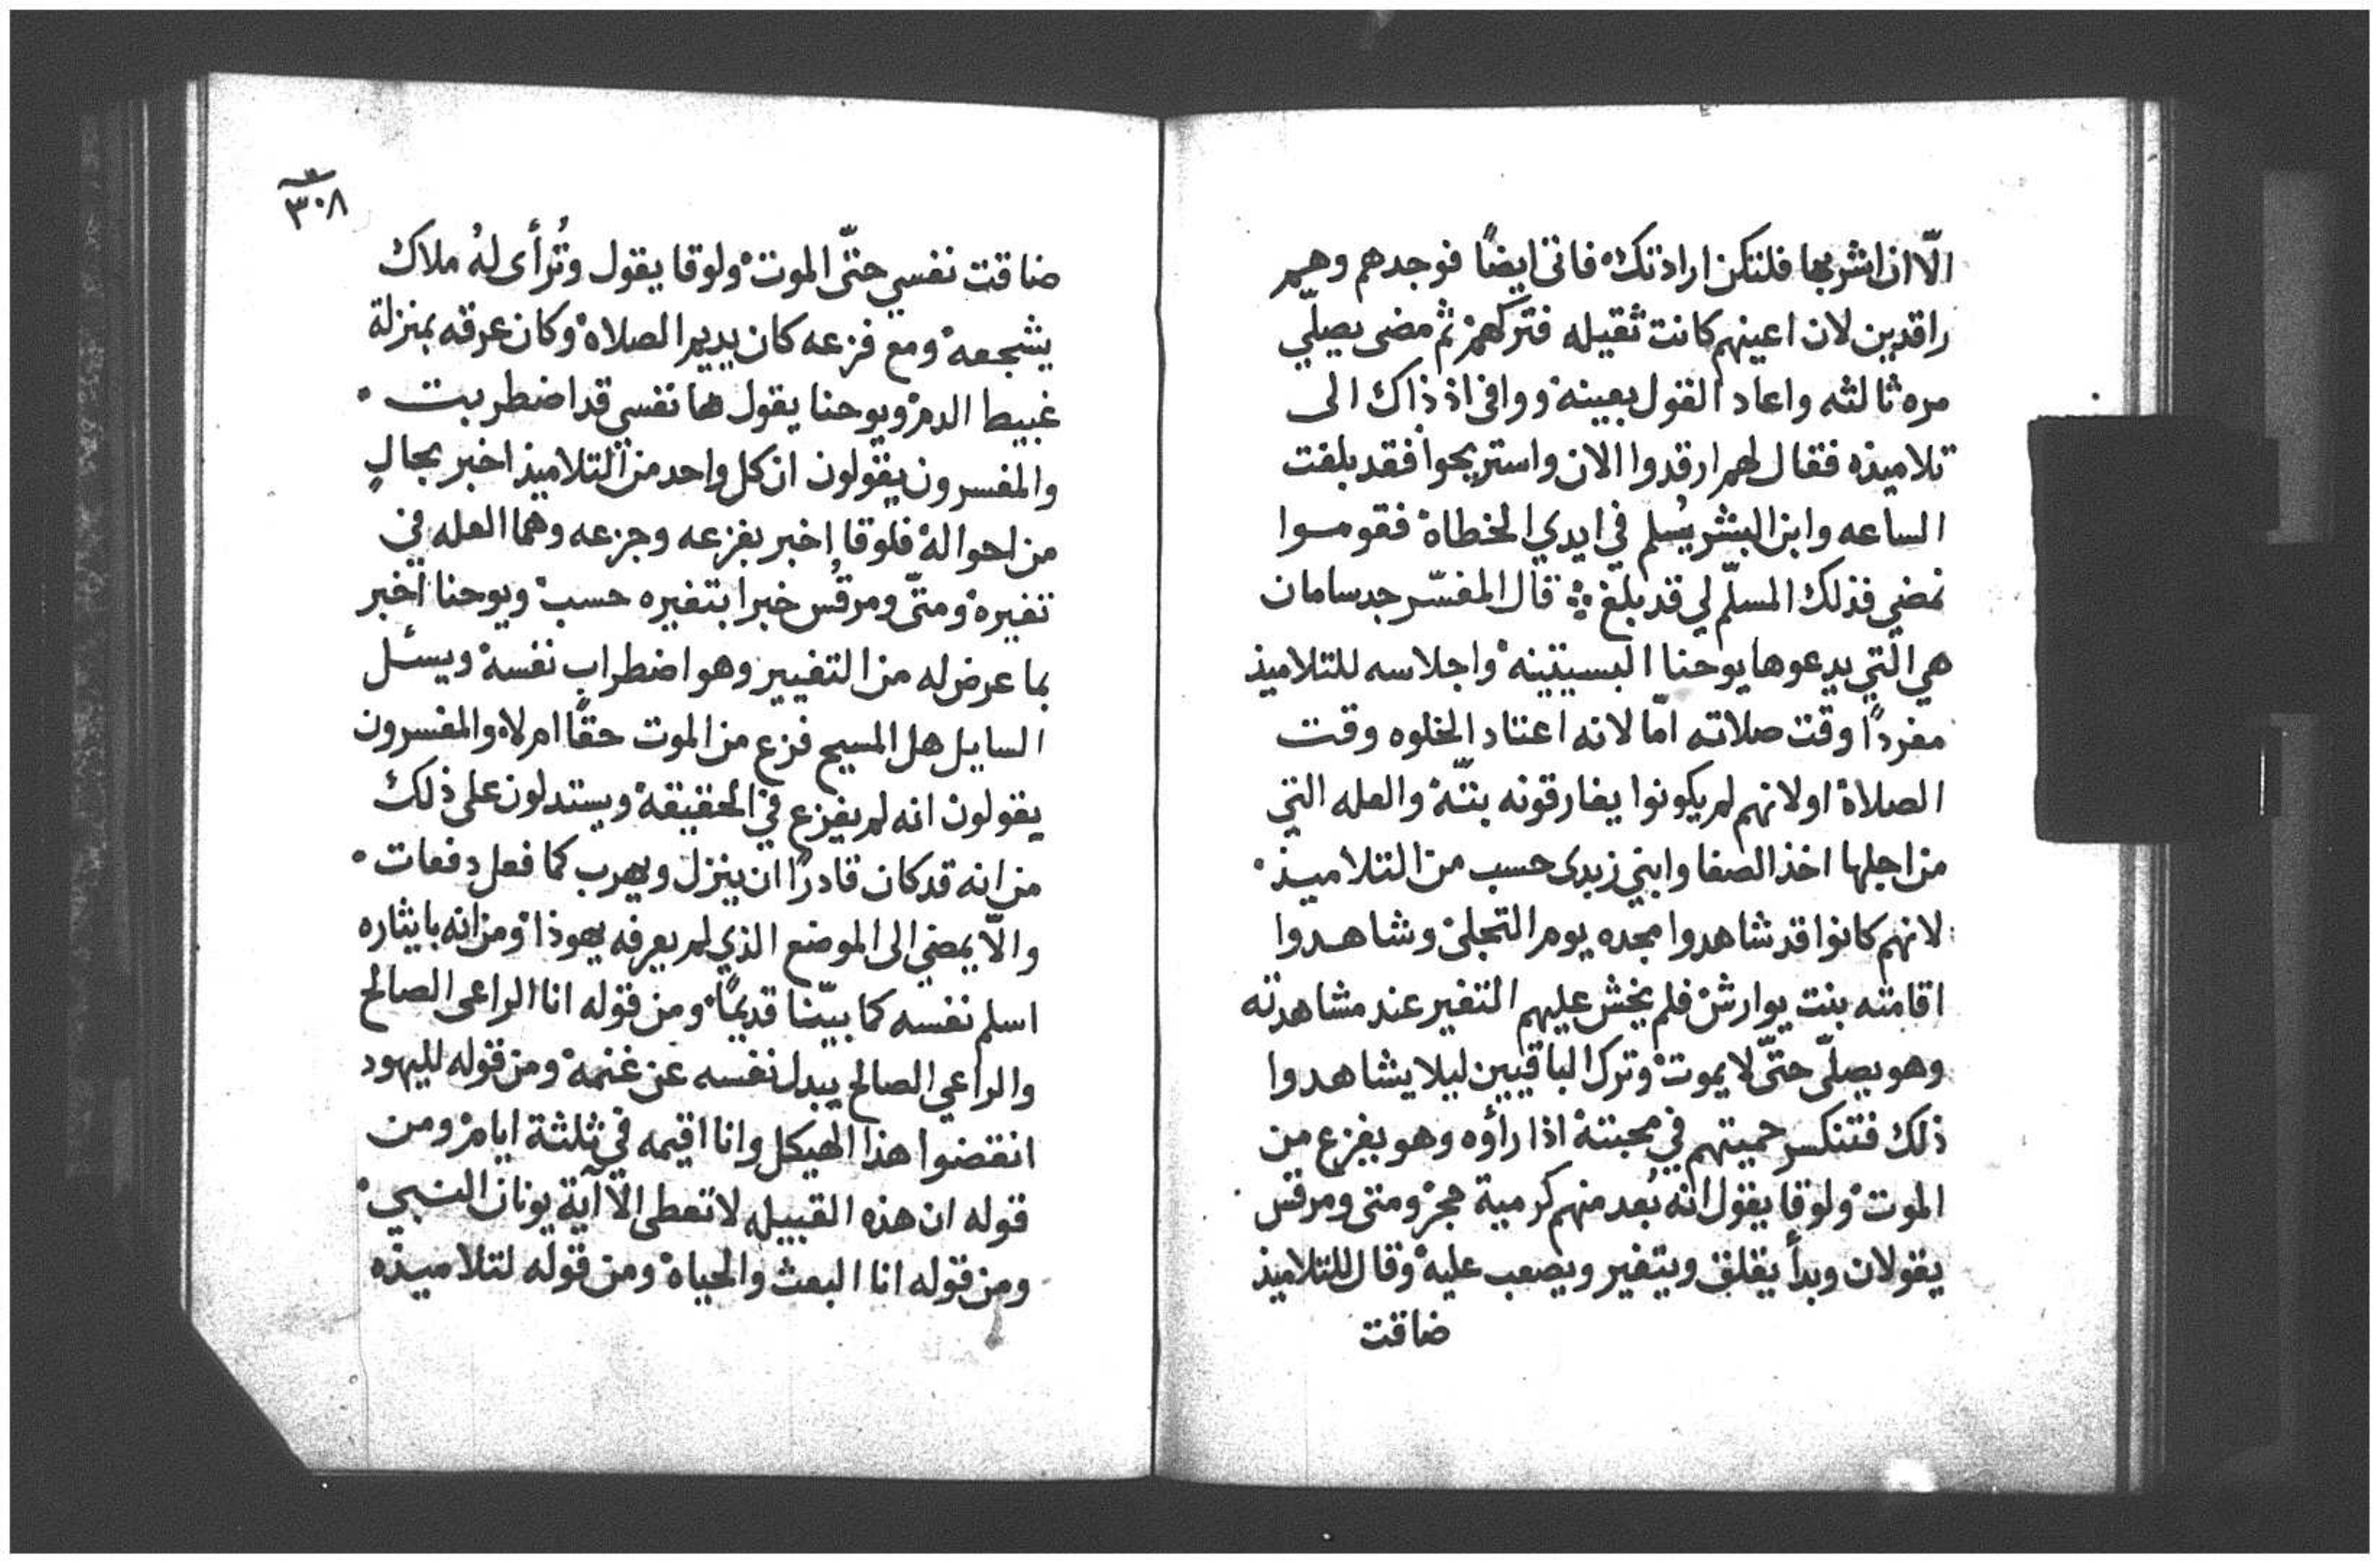 الّا ان اشربها فلتكن ارادتك فاتى ايضًا فوجدهم وهم
راقدين لان اعينهم كانت ثقيله فتركهم ثم مضى يصلّي
مره ثالثه واعاد القول بعينه ووافى اذ ذاك الى
تلاميذه فقال لهم ارقدوا الان واستريحوا فقد بلغت
الساعه وابن البشر يُسلم في ايدي الخطاة فقوموا
نمضي فذلك المسلّم لي قد بلغ ܀ قال المفسّر جدسامان
هي التي يدعوها يوحنا البسيتينه واجلاسه للتلاميذ
مفردًا وقت صلاته امّا لانه اعتاد الخلوه وقت
الصلاة او لانهم لم يكونوا يفارقونه بتّة والعله التي
من اجلها اخذ الصفا وابني زبدى حسب من التلاميذ
لانهم كانوا قد شاهدوا مجده يوم التجلي وشاهدوا
اقامته بنت يوارش فلم يخش عليهم التغير عند مشاهدته
وهو يصلّى حتّى لا يموت وترك الباقيين ليلا يشاهدوا
ذلك فتنكسر حميتهم في محبته اذا راؤه وهو يفزع من
الموت ولوقا يقول انه بُعد منهم كرمية حجر ومتى ومرقس
يقولان وبدأ يقلق ويتغير ويصعب عليه وقال للتلاميذ
ضاقت
٣٠٨
ضاقت نفسي حتّى الموت ولوقا يقول وتُرأى لهُ ملاك
يشجعه ومع فزعه كان يديم الصلاة وكان عرقه بمنزلة
غبيط الدم ويوحنا يقول ها نفسي قد اضطربت
والمفسرون يقولون ان كل واحد من التلاميذ اخبر بحالٍ
من احواله فلوقا اخبر بفزعه وجزعه وهما العله في
تغيره ومتّى ومرقُس خبرا بتغيره حسب ويوحنا اخبر
بما عرض له من التغيير وهو اضطراب نفسه ويسئل
السايل هل المسيح فزع من الموت حقًا ام لا والمفسرون
يقولون انه لم يفزع في الحقيقة ويستدلون على ذلك
من انه قد كان قادرًا ان ينزل ويهرب كما فعل دفعات
والّا يمضي الى الموضع الذي لم يعرفه يهوذا ومن انه بايثاره
اسلم نفسه كما بيّنا قديمًا ومن قوله انا الراعى الصالح
والراعي الصالح يبدل نفسه عن غنمه ومن قوله لليهود
انقضوا هذا الهيكل وانا اقيمه في ثلثة ايام ومن
قوله ان هذه القبيله لا تعطى الّا آية يونان النبي
ومن قوله انا البعث والحياة ومن قوله لتلاميذه